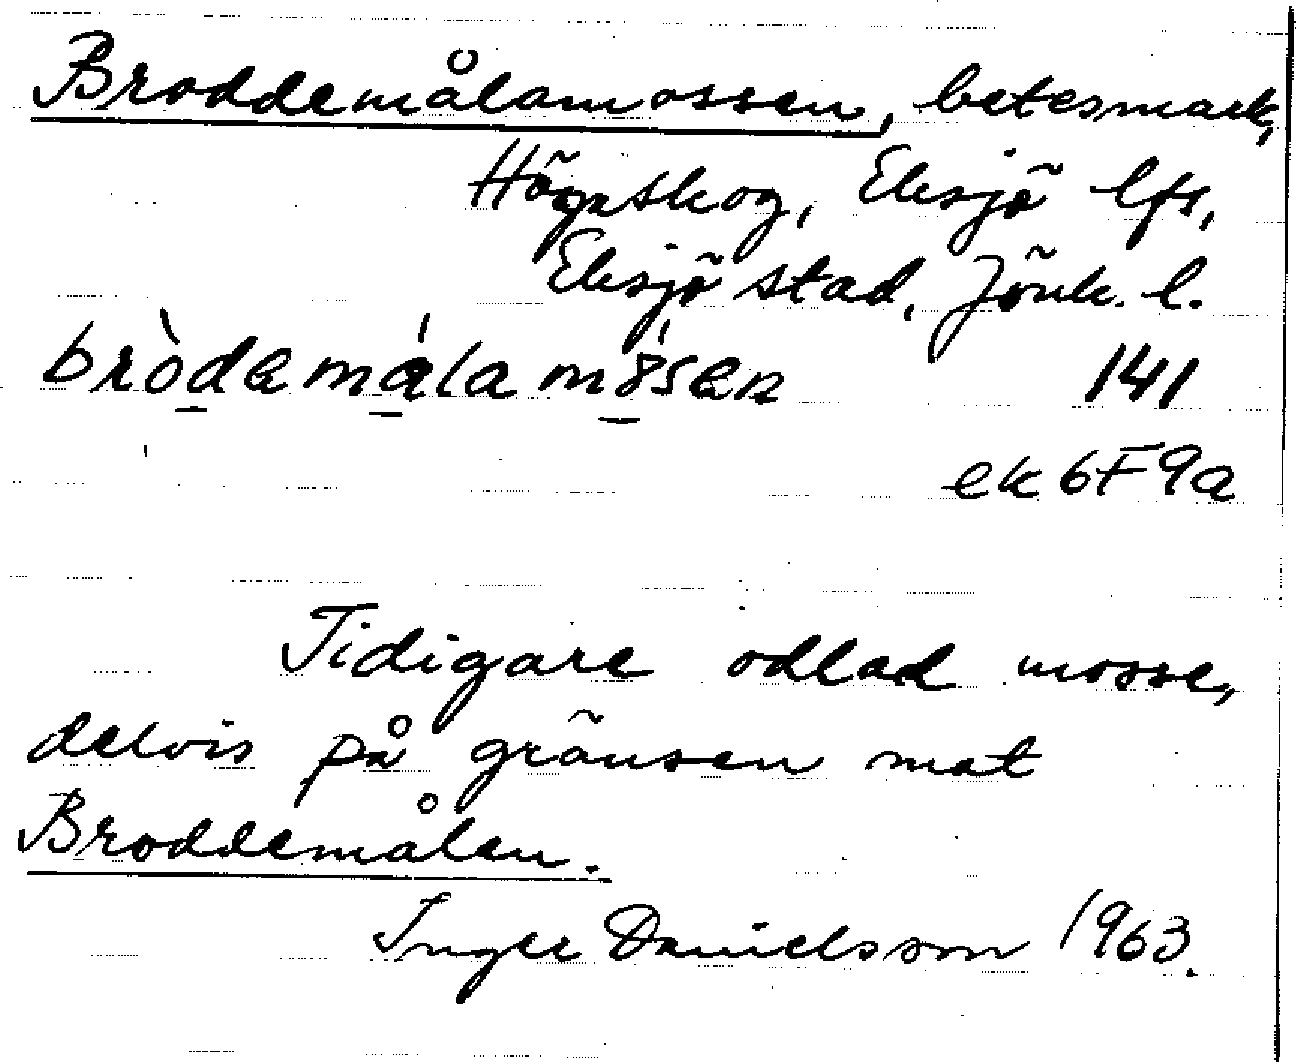 Broddemålamossen, betesmark,
Högaskog, Eksjö lfs,
Eksjö stad, Jönk. l.
bròdemála mósen 141
ek 6F9a
Tidigare odlad mosse,
delvis på gränsen mot
Broddemålen.
Inger Danielsson 1963.